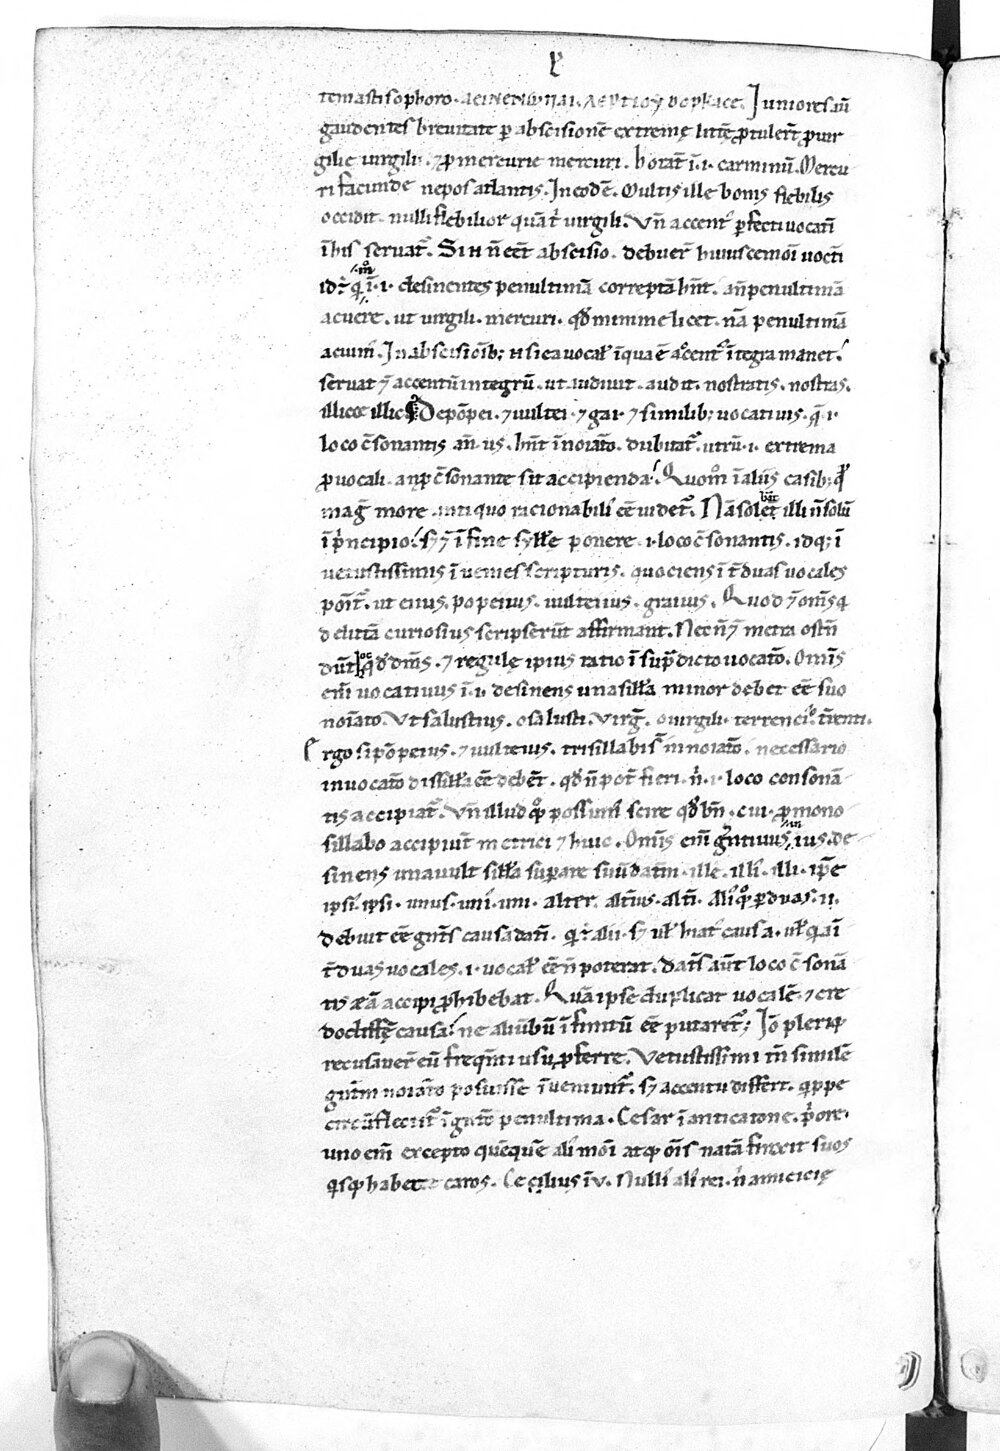 temastisophoro. ΛΕΙΝΕΝΩΠΑΙ. ΛΕΡΤΙΟΥ ΒΟΡΚΑCΕ. Juniores aū
gaudentes breuitate ꝑ abscisionē extremę littę ꝓtulert̄ ꝓ uir
gilie uirgili. ⁊ ꝓ mercurie mercuri. Horat̄ ī. i. carminū. Mercu
ri facunde nepos atlantis. In eodē. Multis ille bonis flebilis
occidit. nulli flebilior quā t᷒ uirgili. Vn̄ accent᷒ ꝑfecti uocati
ī his seruat᷒. Si ⁊ n̄ eēt abscisio. debuer̄ huiuscemōi uocti
id ÷ q̄ ī. i. desinentes penultimā correptā hn̄t. an̄penultimā
acuere. ut uirgili. mercuri. qd̄ minime licet. nā penultimā
acuim᷒. In abscisiōib; ⁊ si ea uocal̄ ī qua ē accent᷒ ītegra manet.
seruat᷒ ⁊ accentū integrū. ut audiuit. audit. nostratis. nostras.
illicce illic. De pōpei. ⁊ uultei. ⁊ gai. ⁊ similib; uocatiuis. q̄. i.
loco c̄sonantis an̄ us. hn̄t ī noiat̄o. dubitat᷒. utrū. i. extrema
ꝓ uocali. an ꝓ c̄sonante sit accipienda. Quom̄o ī aliis casib;
mag᷒ more antiquo racionabili᷒ eē uidet᷒. Nā solebāt illi n̄ solū
ī principio. s; ⁊ ī fine syll̄e ponere. i. loco c̄sonantis. idq; ī
uetustissimis īuenies scripturis. quociens īt᷒ duas uocales
ponit᷒. ut eiius. pompeiius. uulteiius. gaiius. Quod ⁊ om̄s q̄
de litt̄a curiosius scripserūt affirmant. Nec n̄ ⁊ metra ostn̄
dūt hoc qd̄ dīm᷒s. ⁊ regulę ipius ratio ī sup̄dicto uocat̄o. Om̄is
eni᷒ uocatiuus ī. i. desinens una sill̄a minor debet eē suo
noiat̄o. Vt salustius. o salusti. uirḡ. o uirgili. terrenci᷒. o t̄renti.
Ergo si pōpeius. ⁊ uulteius. trisillabi s̄t in noiat̄o. necessario
in uocat̄o dissill̄a eē debēt. qd̄ n̄ pot̄ fieri. n̄. i. loco consonā
tis accipiat᷒. Vn̄ illud qq̄ possum᷒ scire qd̄ bn̄. cui. ꝓ mono
sillabo accipiūt metrici ⁊ huic. Om̄is em̄ gn̄tiuus in ius. de
sinens una uult sill̄a supare suū datiuū. ille. illi᷒. illi. ip̄e
ipsi᷒. ipsi. unus. uni᷒. uni. alter. alt̄ius. alt̄i. Ali᷒ qq̄ ꝑ duas. ii.
debuit eē gn̄ts causa datī. q̄ ÷ alii. s; ul̄ hiat᷒ causa. ul̄ q̄a ī
t᷒ duas uocales. i. uocal̄ eē n̄ poterat. datūs aūt loco c̄sonā
tis eā accipi ꝓhibebat. Quā ipse duplicat uocalē. ⁊ cre
do diff̄ę causa. ne aduerbiū īfinitū eē putaret᷒; Io pleriq;
recusauer̄ eū freq̄nti usu ꝓferre. Vetustissimi tn̄ similē
gn̄tm noiat̄o posuisse īueniunt᷒. s; accentu differt. quippe
circūflectit᷒ ī gn̄to penultima. Cesar ī anticatone. priore.
uno em̄ excepto quēquē ali᷒ mōi atq; om̄is natā finxit suos
q̄sq; habet caros. Cecilius ī. v. Nulli᷒ ali᷒ rei. n̄ amicicię